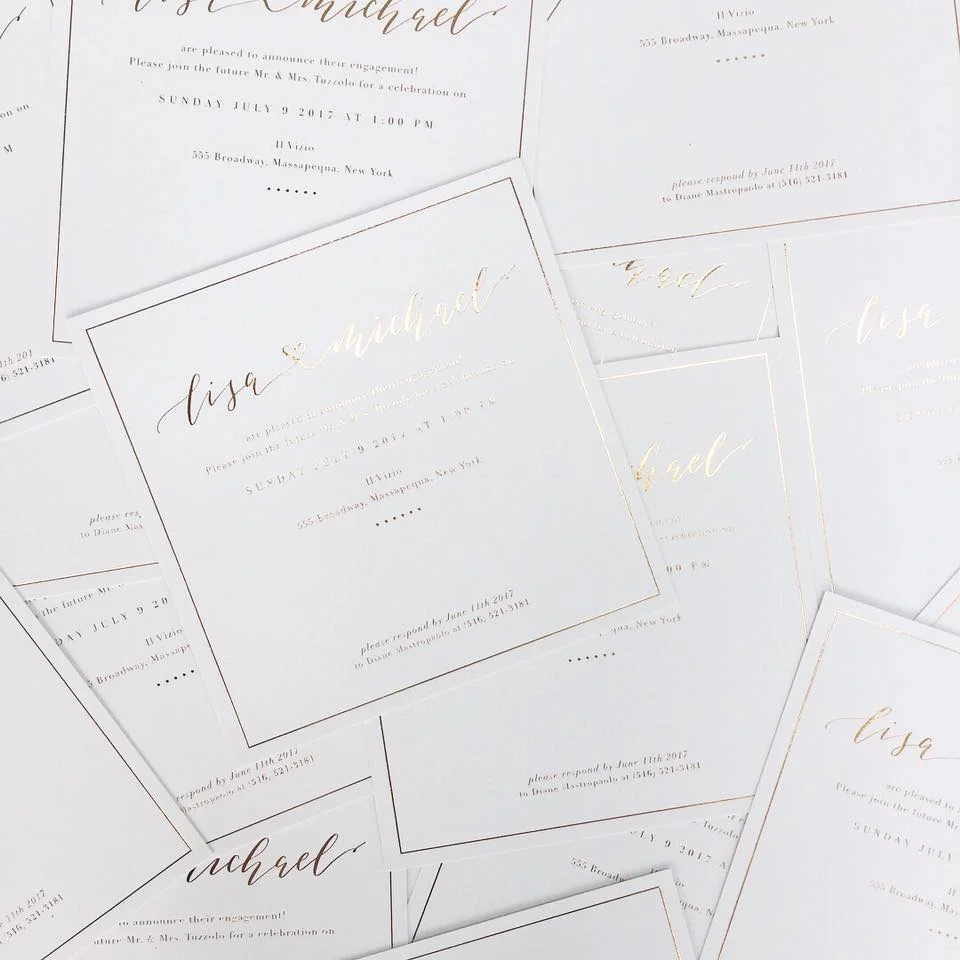 lisa michael
are pleased to announce their engagement!
Please join the future Mr. & Mrs. Tuzzolo for a celebration on
SUNDAY JULY 9 2017 AT 1:00 PM
Il Vizio
555 Broadway, Massapequa, New York
Il Vizio
555 Broadway, Massapequa, New York
please respond by June 11th 2017
to Diane Mastropaolo at (516) 521-3181
lisa michael
are pleased to announce their engagement!
Please join the future Mr. & Mrs. Tuzzolo for a celebration on
SUNDAY JULY 9 2017 AT 1:00 PM
Il Vizio
555 Broadway, Massapequa, New York
please respond by June 11th 2017
to Diane Mastropaolo at (516) 521-3181
lisa
are pleased
Please join the
hael
00 PM
qua, New York
please respond by June 11th 2017
to Diane Mastropaolo at (516) 521-3181
please res
to Diane Mas
the future Mr.
DAY JULY 9 20
Il Vizio
5 Broadway, Massapequa, N
respond by June 11th 2017
Mastropaolo at (516) 521-3181
11th 2017
516) 521-3181
michael
to announce their engagement!
future Mr. & Mrs. Tuzzolo for a celebration on
Tuzzolo
ULY 9 2017 A
Il Vizio
555 Broadway
lisa
are pleased to
Please join the future Mr.
SUNDAY JULY
555 Broadway, Mas